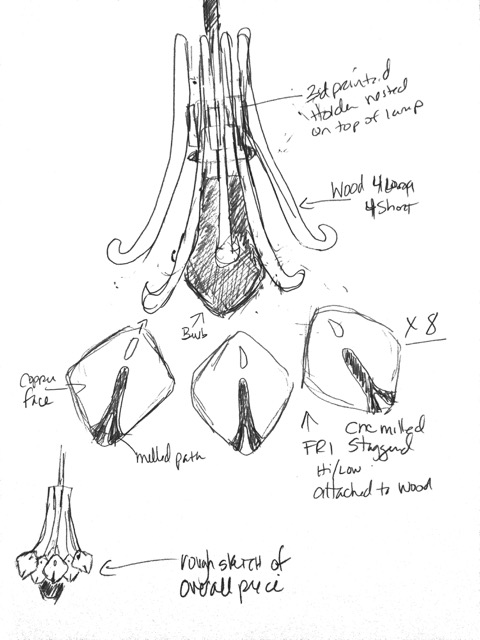 3d printed
Holder nested
on top of lamp
Wood 4 Long
4 Short
Bulb
X 8
Copper
face
milled path
CNC milled
FR1 Staggered
Hi/Low
attached to wood
rough sketch of
overall piece